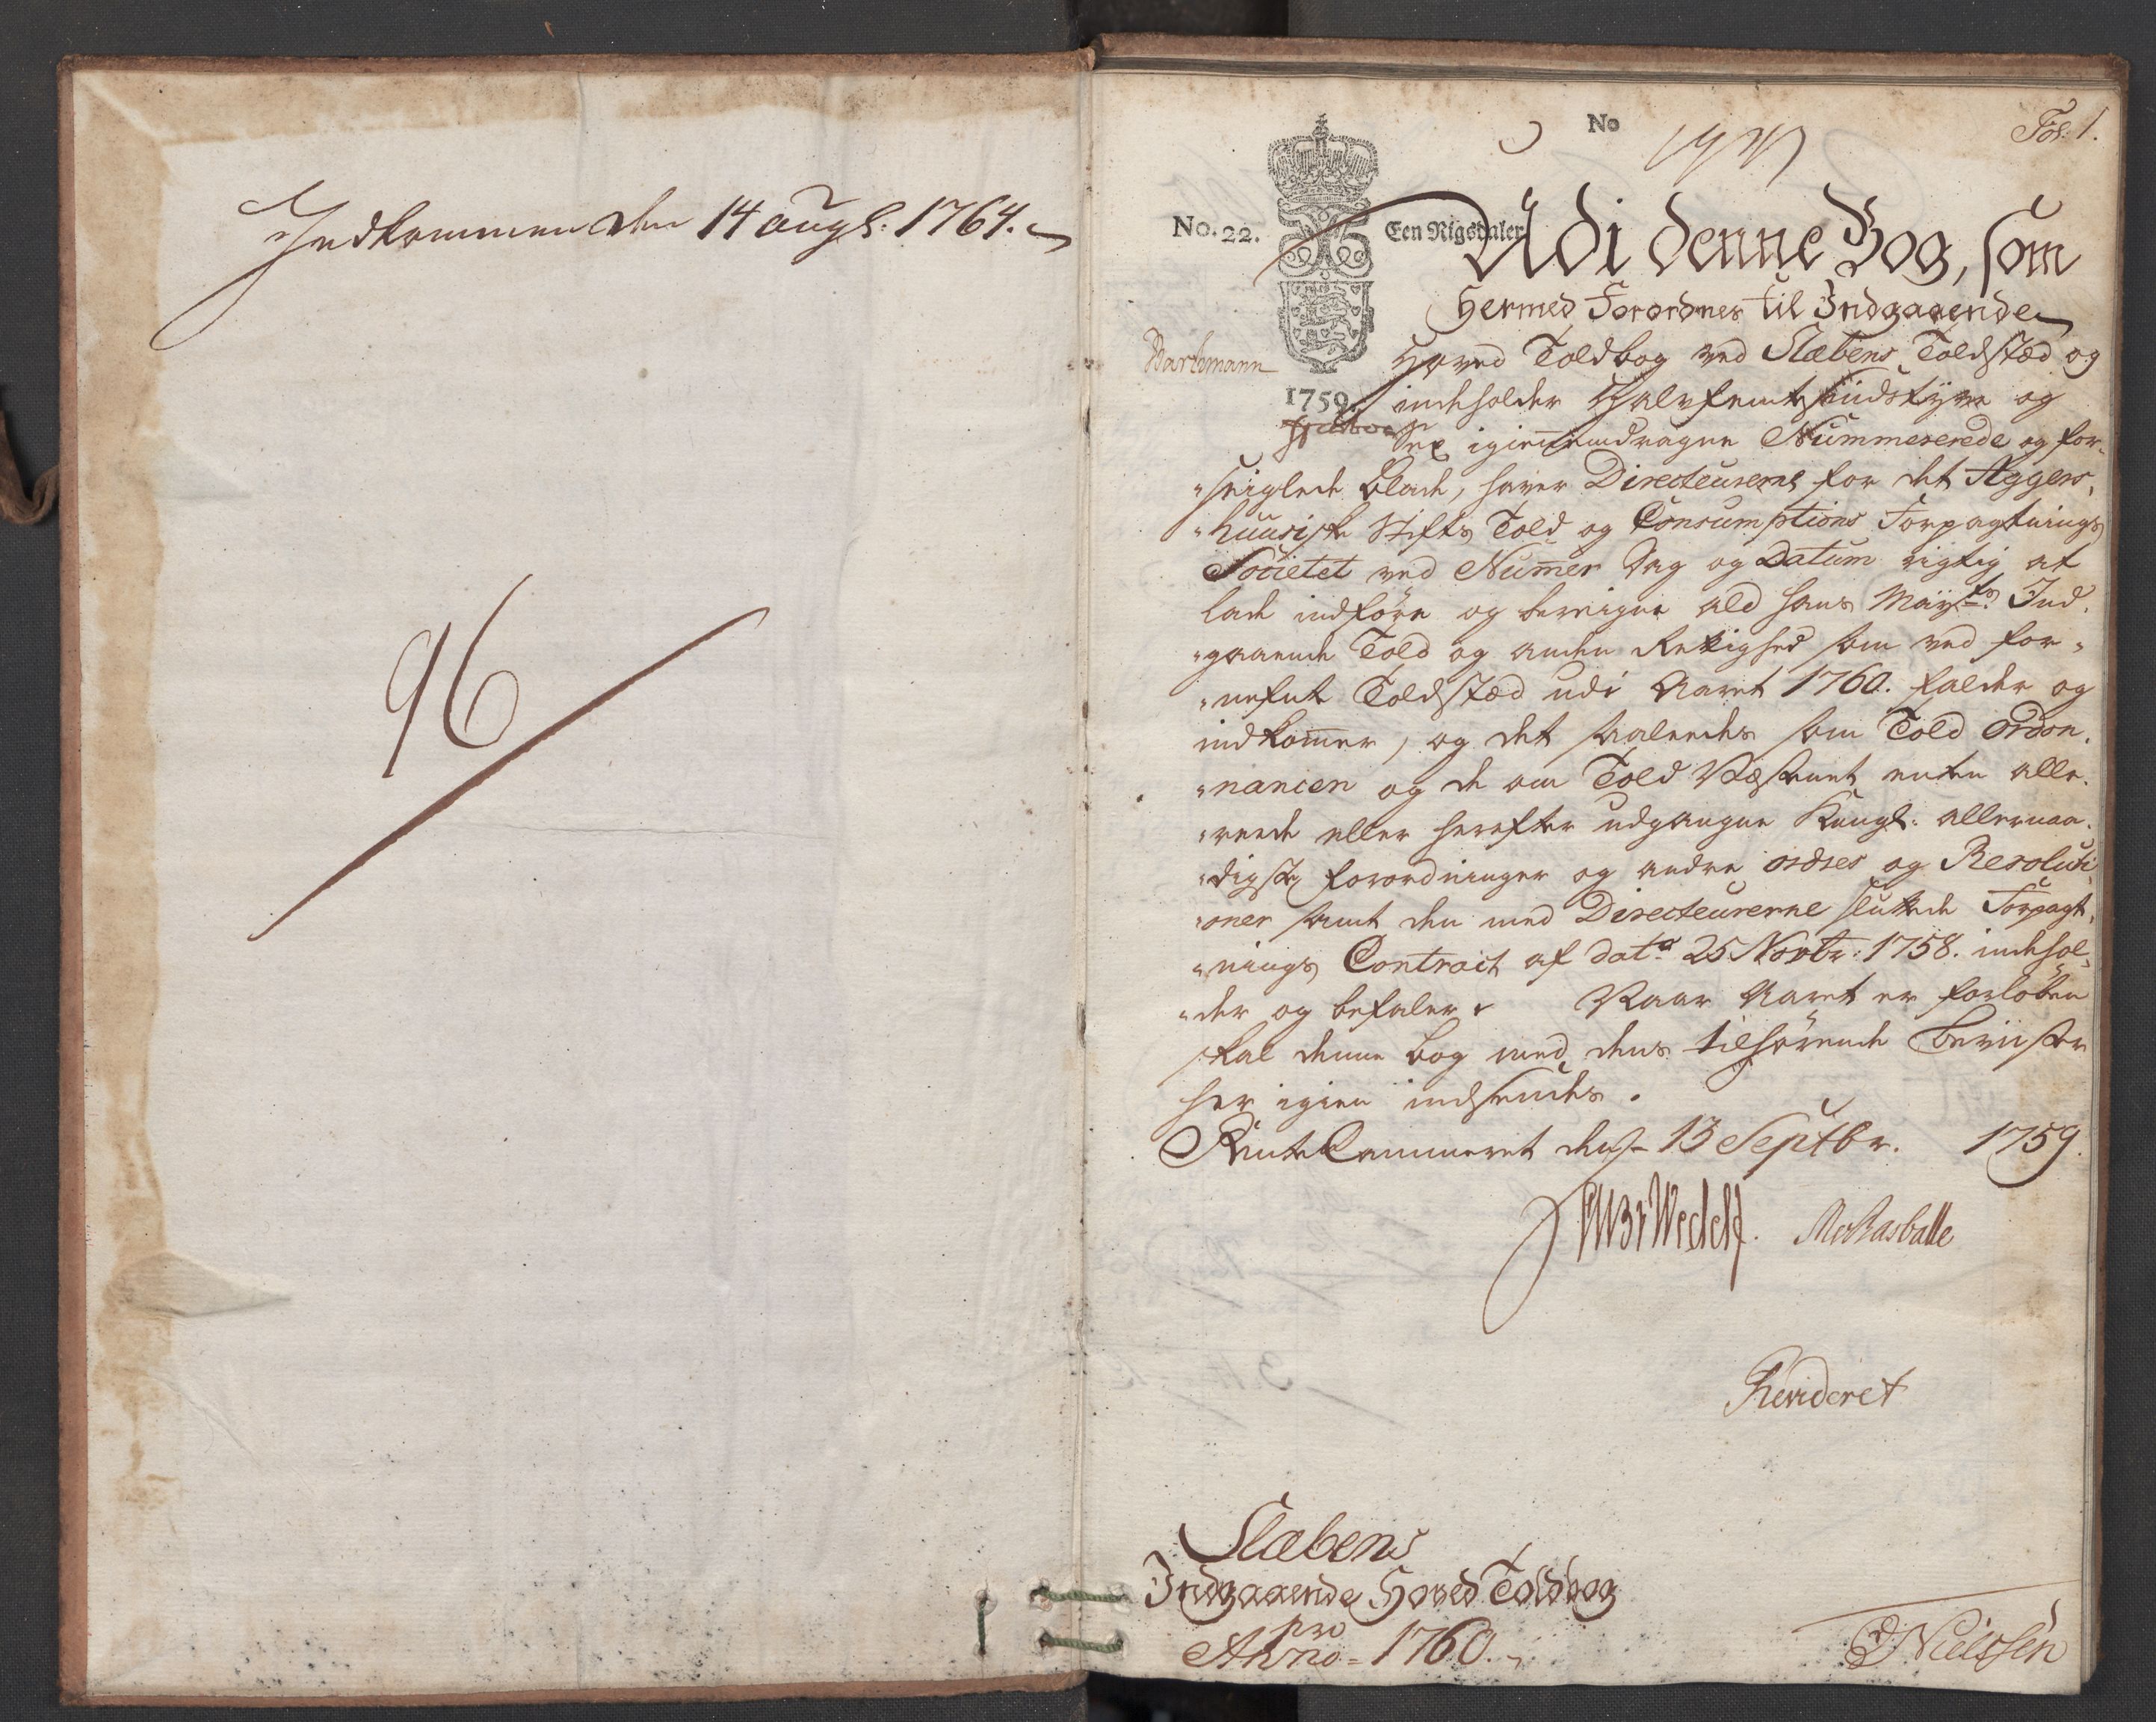 Indkommen den 14 augl: 1764.
96
No
Fol: 1.
No. 22.
Een Rigsdaler
Udi denne Bog, som
hermed Forordnes til Indgaaende
Hoved Toldbog ved Slæbens Toldstæd og
1759.
indeholder Halvfemtesindstyve og
Sex igiennemdragne Nummererede og for-
"seiglede blade, haver Directeurerne for det Agger-
"huusiske Stifts Told og Consumptions Forpagtnings
Societet ved Numer Dag og Datum rigtig at
lade indføre og beregne ald Hans Mayts. Ind-
"gaaende Told og anden Rettighed som ved for-
"nefnte Toldstæd udi Aaret 1760. falder og
indkomer, og det saaledes som Told Ordon-
"nancen og de om Told Væsenet enten alle-
"reede eller herefter udgangne Kongl: allernaa-
"digste forordninger og andre ordres og Resoluti-
"oner samt den med Directeurerne sluttede Forpagt-
"nings Contract af dato 25 Novbr: 1758. indehol-
"der og befaler. Naar Aaret er forløben
skal denne bog med dens tilhørende beviiser
her igien indsendes.
RenteCammeret den 13 Septbr. 1759.
Revideret
Slæbens
Indgaaende Hoved Toldbog
pro
Anno = 1760.
Nielsen